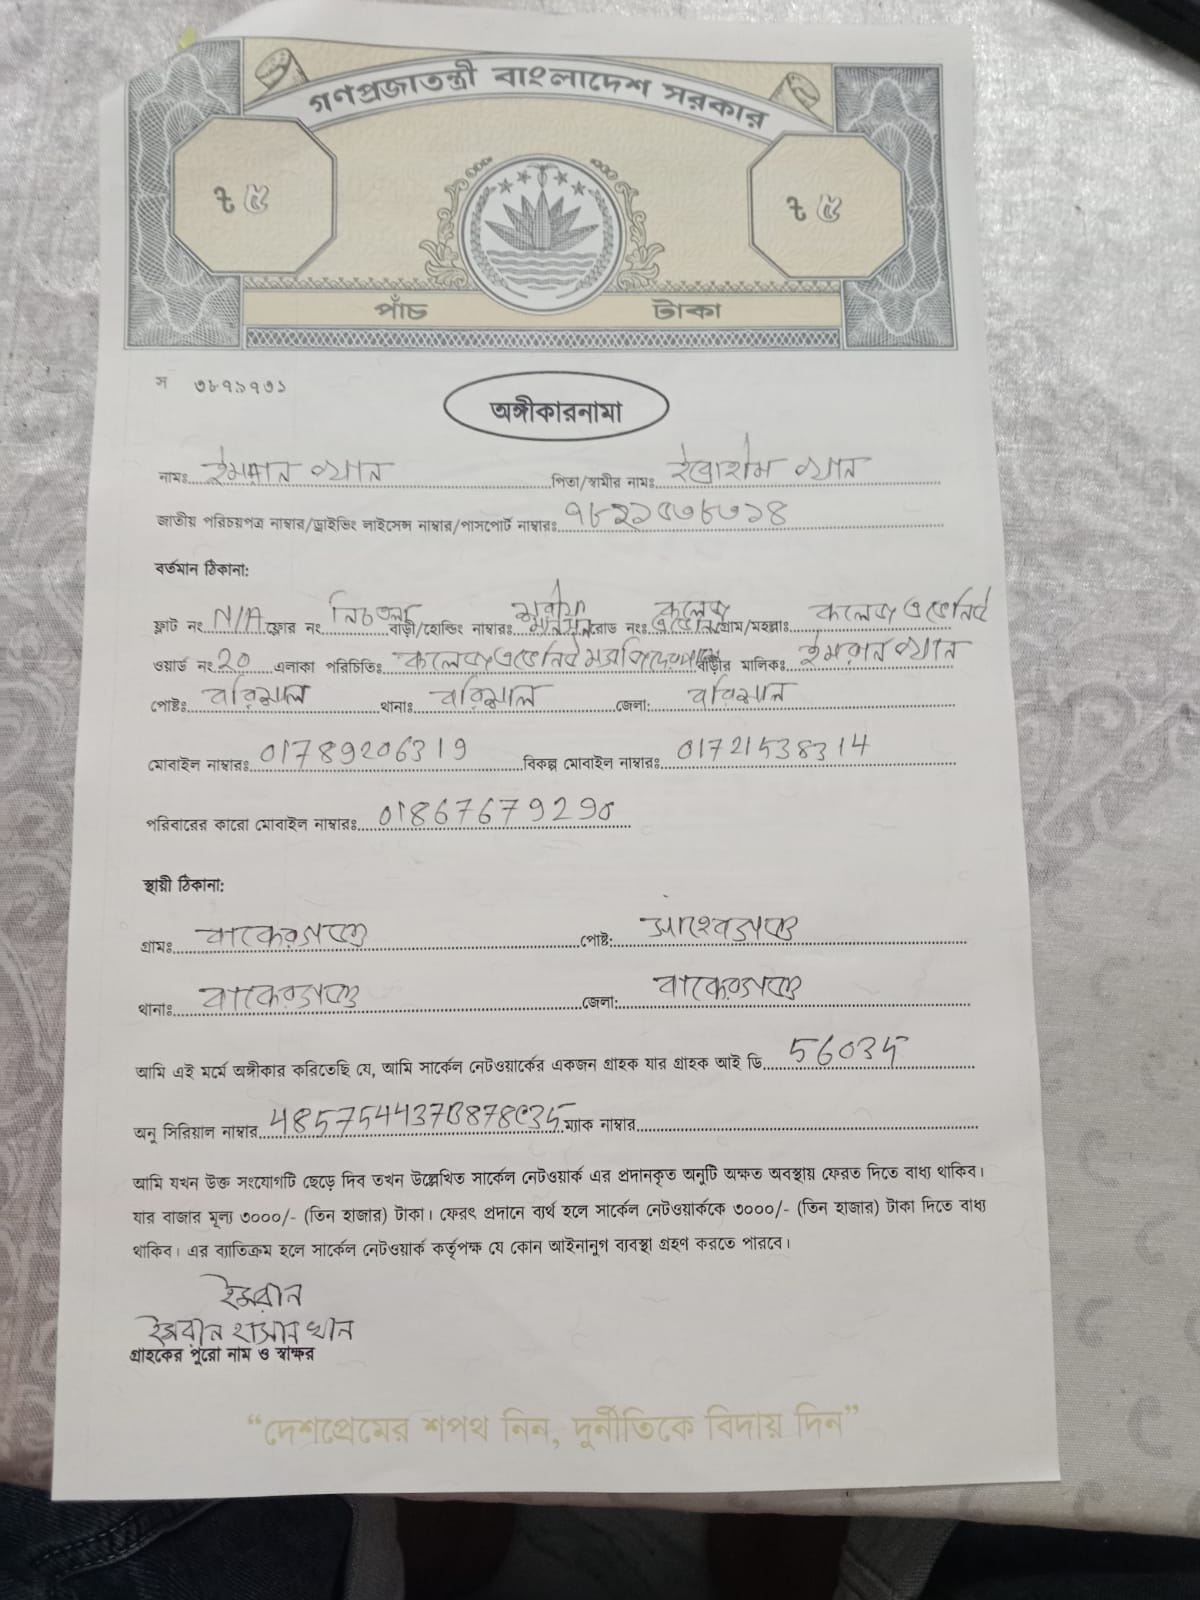 গণপ্রজাতন্ত্রী বাংলাদেশ সরকার
৳ ৫ ৳ ৫
পাঁচ টাকা
স ৩৮৭১৭৩১
অঙ্গীকারনামা
নামঃ ইমরান খান পিতা/স্বামীর নামঃ ইব্রাহীম খান
জাতীয় পরিচয়পত্র নাম্বার/ড্রাইভিং লাইসেন্স নাম্বার/পাসপোর্ট নাম্বারঃ
বর্তমান ঠিকানা:
ফ্লাট নং N/A ফ্লোর নং নিচতলা বাড়ী/হোল্ডিং নাম্বারঃ রোড নংঃ কলেজ এভেনিউ গ্রাম/মহল্লাঃ কলেজ এভেনিউ
ওয়ার্ড নং 20 এলাকা পরিচিতিঃ কলেজ এভেনিউ মসজিদের বাড়ীর মালিকঃ ইমরান খান
পোষ্টঃ বরিশাল থানাঃ বরিশাল জেলা: বরিশাল
মোবাইল নাম্বারঃ 01789206319 বিকল্প মোবাইল নাম্বারঃ 01721538314
পরিবারের কারো মোবাইল নাম্বারঃ 01867679290
স্থায়ী ঠিকানা:
গ্রামঃ বাকেরগঞ্জ পোষ্ট:
থানাঃ বাকেরগঞ্জ জেলা: বাকেরগঞ্জ
আমি এই মর্মে অঙ্গীকার করিতেছি যে, আমি সার্কেল নেটওয়ার্কের একজন গ্রাহক যার গ্রাহক আই ডি 56035
অনু সিরিয়াল নাম্বার 485754437B878C35 ম্যাক নাম্বার
আমি যখন উক্ত সংযোগটি ছেড়ে দিব তখন উল্লেখিত সার্কেল নেটওয়ার্ক এর প্রদানকৃত অনুটি অক্ষত অবস্থায় ফেরত দিতে বাধ্য থাকিব।
যার বাজার মূল্য ৩০০০/- (তিন হাজার) টাকা। ফেরৎ প্রদানে ব্যর্থ হলে সার্কেল নেটওয়ার্ককে ৩০০০/- (তিন হাজার) টাকা দিতে বাধ্য
থাকিব। এর ব্যাতিক্রম হলে সার্কেল নেটওয়ার্ক কর্তৃপক্ষ যে কোন আইনানুগ ব্যবস্থা গ্রহণ করতে পারবে।
ইমরান
ইমরান হাসান খান
গ্রাহকের পুরো নাম ও স্বাক্ষর
“দেশপ্রেমের শপথ নিন, দুর্নীতিকে বিদায় দিন”